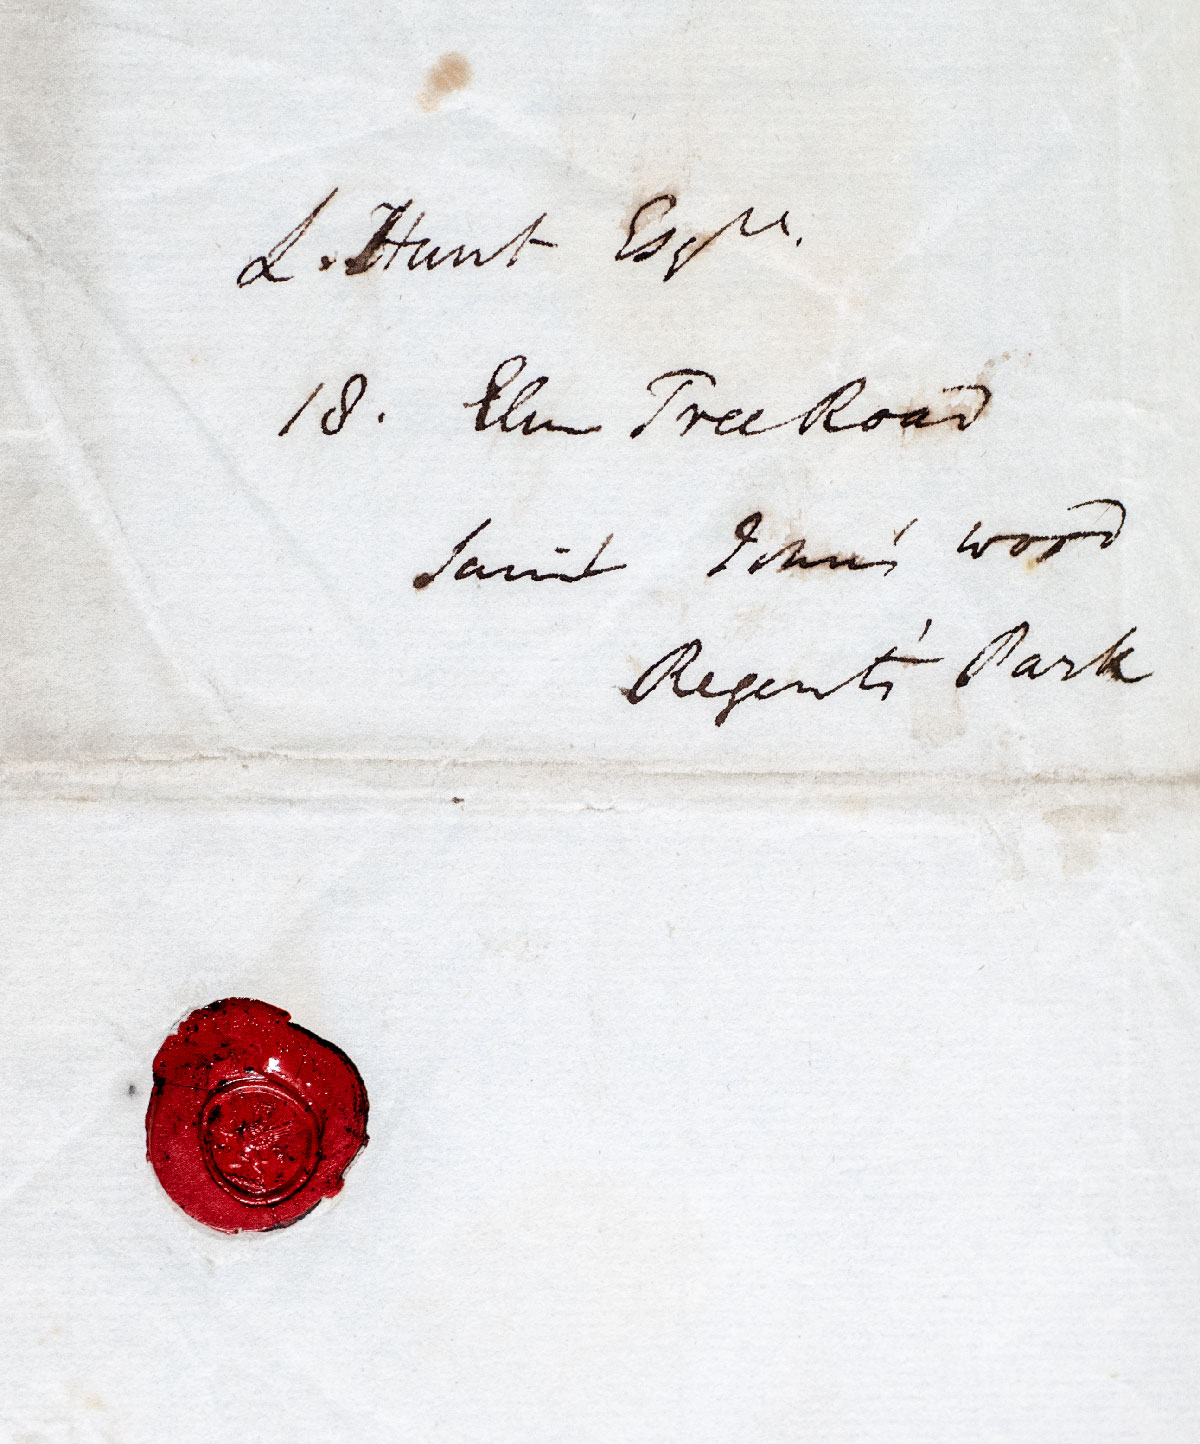 L. Hunt Esqre.
18. Elm Tree Road
Saint John's wood
Regent's Park